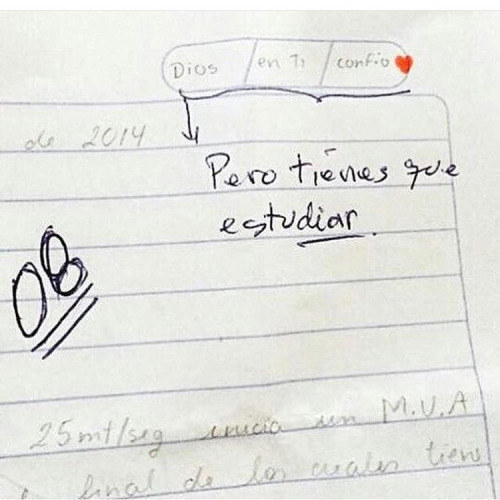 Dios / en Ti / confio
de 2014
Pero tiénes que
estudiar.
08
25mt/seg inicia un M.U.A
final de los cuales tiene